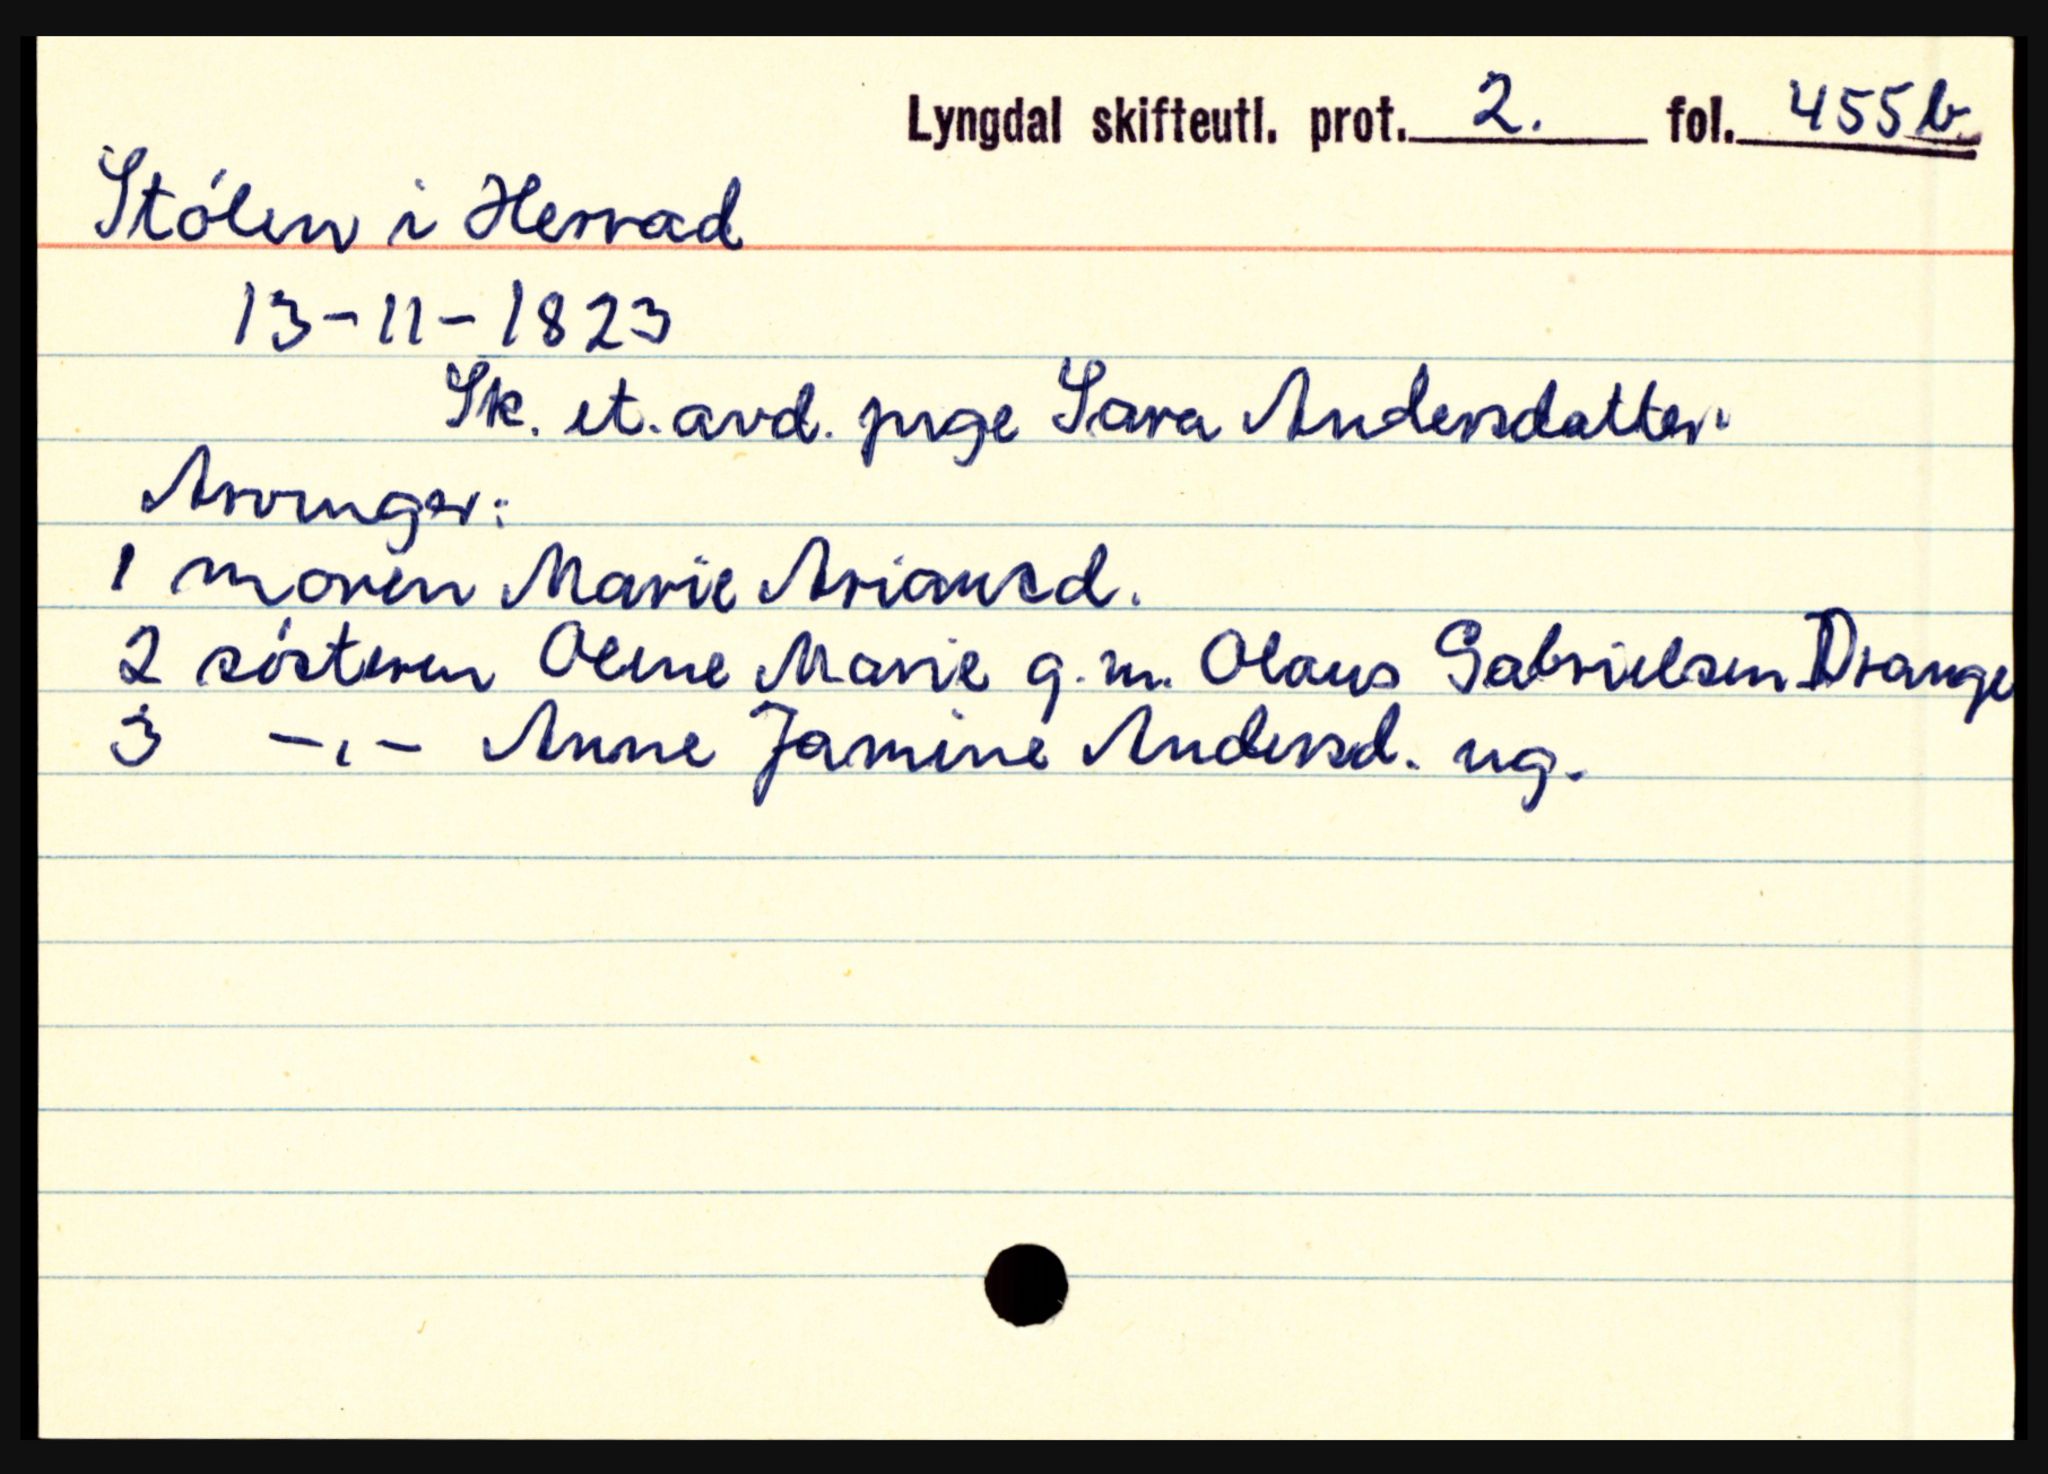 Lyngdal skifteutl. prot. 2. fol. 455b
Stólen i Herrad
13-11-1823
Sk. et. avd. pige Sara Andersdatter.
Arvinger:
1 moren Marie Ariansd.
2 sósteren Oline Marie g.m. Olaus Gabrielsen Drange
3 -,- Anne Jamine Andersd. ug.